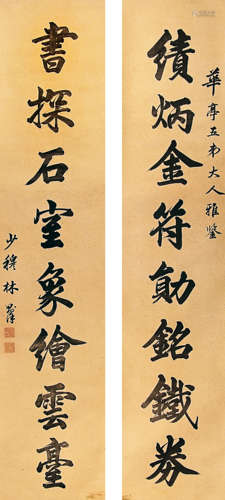 華亭五弟大人雅鑒
績炳金符勛銘鐵券
書探石室象繪雲臺
少穆林則徐